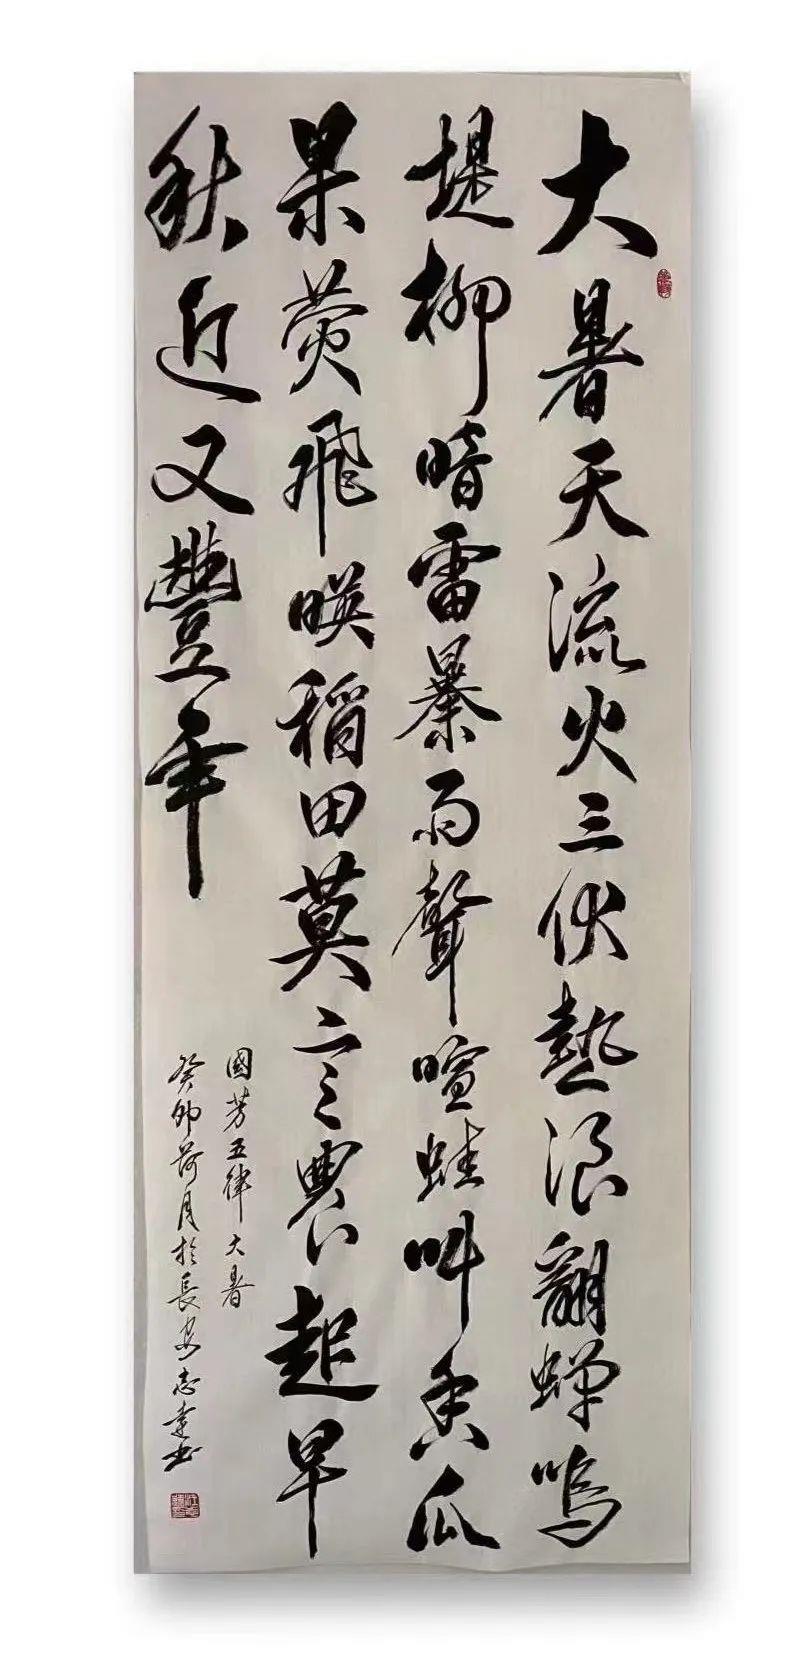 大暑天流火三伏熱浪翻蟬鳴
堤柳暗雷暴雨聲喧蛙叫香瓜
果熒飛映稻田莫言農起早
秋近又豐年
國芳五律大暑
癸卯荷月於長安志達書